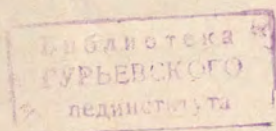 Библиотека
ГУРЬЕВСКОГО
пединститута